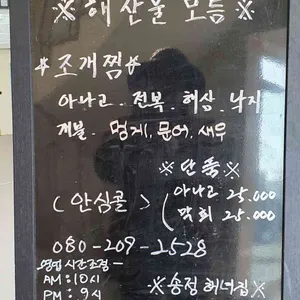 ※ 해산물 모듬 ※
* 조개찜 *
아나고. 전복. 해삼. 낙지
개불. 멍게. 문어. 새우
※ 단품 ※
(안심콜) 아나고 25.000
막회 25.000
080-209-2528
영업시간조정-
AM : 10시
PM : 9시
※ 송정해녀집